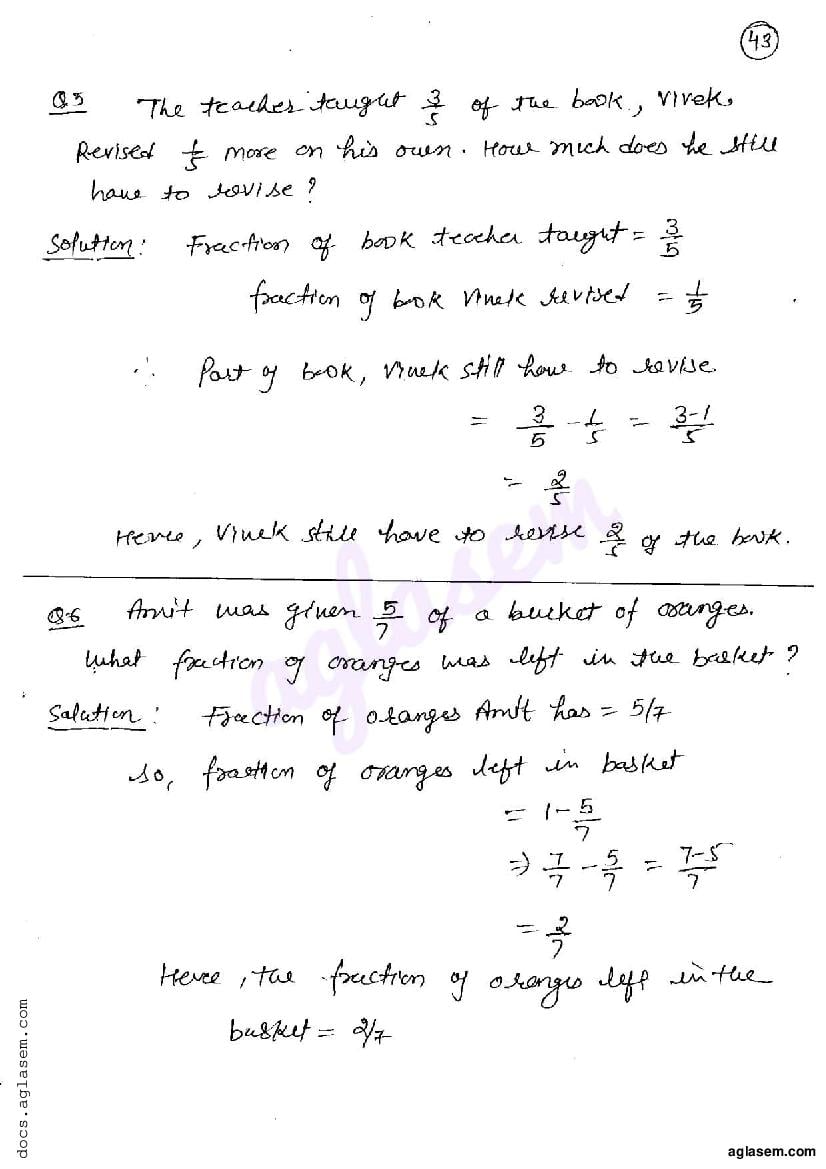 43
Q5 The teacher taught 3/5 of the book, Vivek.
Revised 1/5 more on his own. How much does he still
have to revise?
Solution: Fraction of book teacher taught = 3/5
fraction of book Vivek revised = 1/5
∴ Part of book, Vivek still have to revise.
= 3/5 - 1/5 = 3-1/5
= 2/5
Hence, Vivek still have to revise 2/5 of the book.
Q6 Amit was given 5/7 of a bucket of oranges.
What fraction of oranges was left in the basket?
Solution: Fraction of oranges Amit has = 5/7
so, fraction of oranges left in basket
= 1 - 5/7
⇒ 7/7 - 5/7 = 7-5/7
= 2/7
Hence, the fraction of oranges left in the
basket = 2/7
aglasem
docs.aglasem.com
aglasem.com